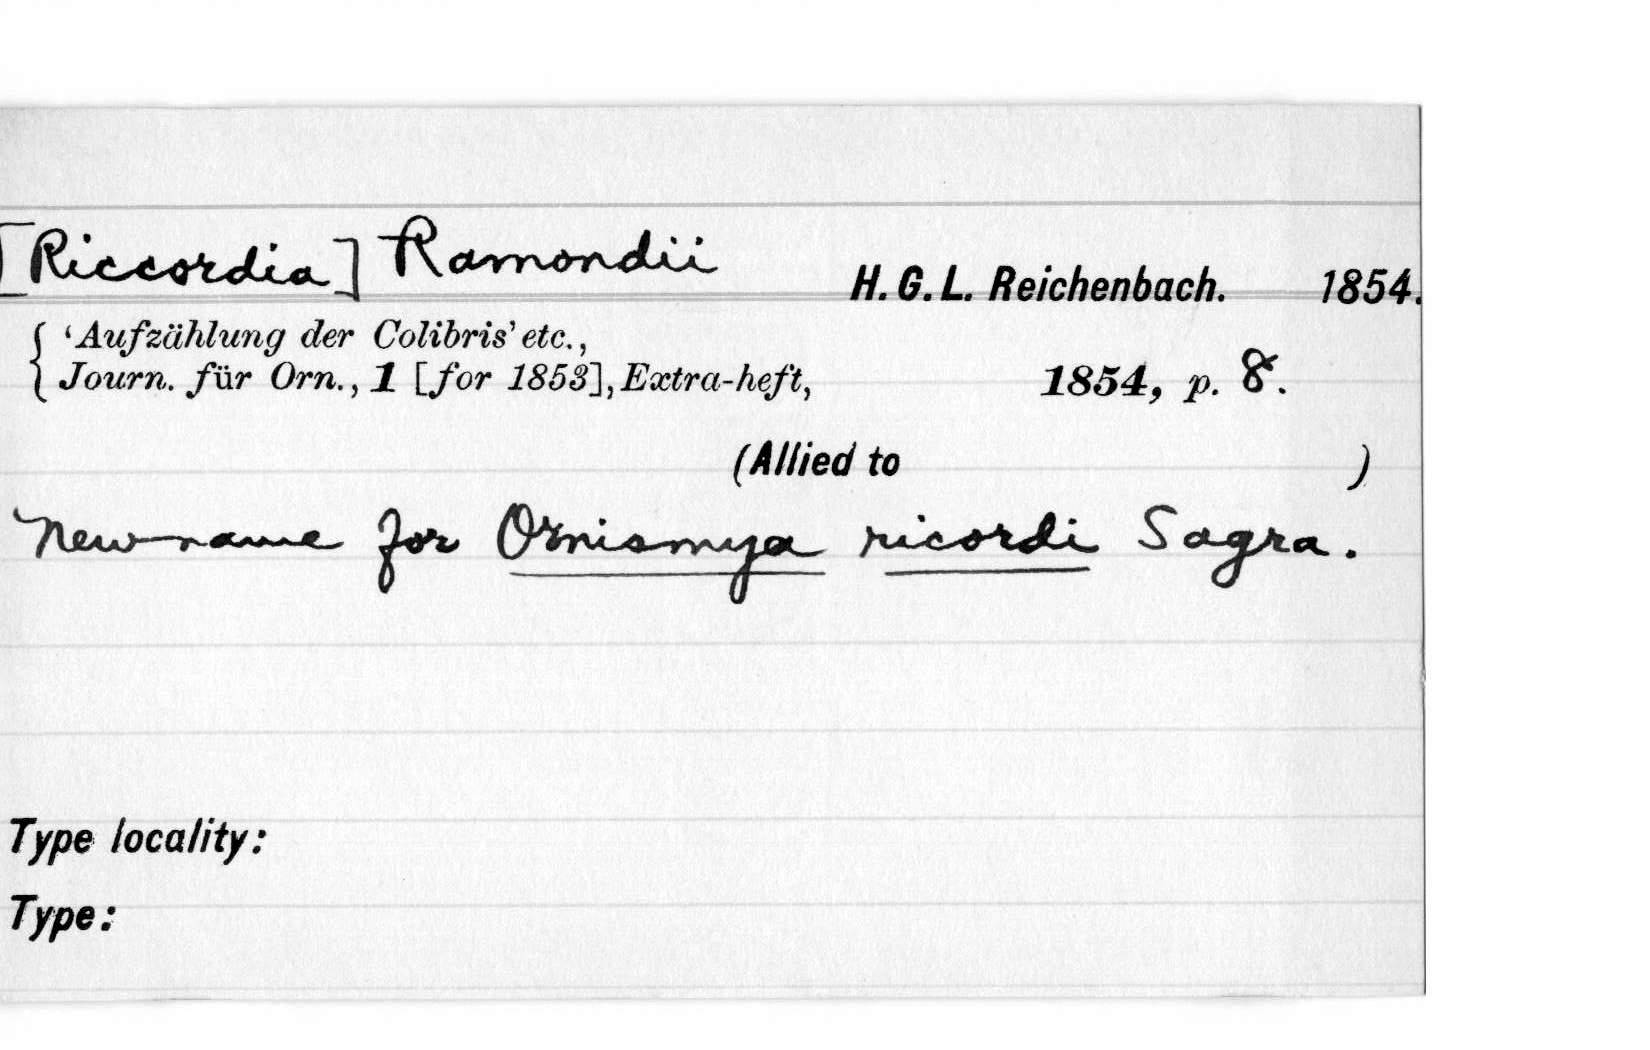 [Riccordia] Ramondii H. G. L. Reichenbach. 1854.
'Aufzählung der Colibris' etc.,
Journ. für Orn., 1 [for 1853], Extra-heft, 1854, p. 8.
(Allied to )
New name for Ornismya ricordi Sagra.
Type locality:
Type: